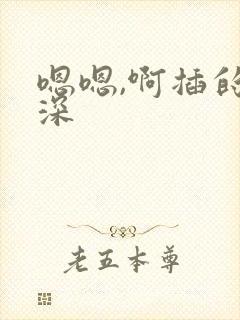 嗯嗯,啊插的
深
老五本尊